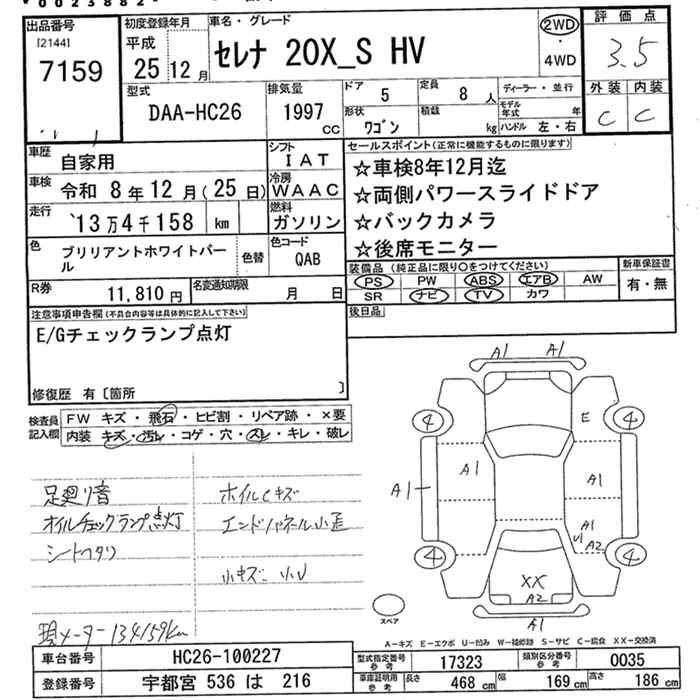 出品番号 初度登録年月 車名・グレード 2WD 評価点
[2144] 平成 セレナ 20X_S HV ・ 3.5
7159 25 12 月 4WD
型式 排気量 ドア 定員 ディーラー・並行 外装 内装
DAA-HC26 1997 CC 5 8 人 モデル年式 年 C C
形状 積載 ハンドル 左・右
ワゴン kg
車歴 自家用 シフト IAT セールスポイント(正常に機能するものに限ります)
車検 令和 8年 12月(25日) 冷房 WAAC ☆車検8年12月迄
走行 13万4千158 km 燃料 ガソリン ☆両側パワースライドドア
☆バックカメラ
☆後席モニター
色 ブリリアントホワイトパール 色替 色コード QAB
装備品(純正品に限り○をつけてください) 新車保証書
PS PW ABS エアB AW 有・無
SR ナビ TV カワ
R券 11,810 円 名変通知期限 月 日
後日品
注意事項申告欄(不具合内容等は具体的に記入して下さい)
E/Gチェックランプ点灯
修復歴 有〔箇所 〕
検査員記入欄 FW キズ・飛石・ヒビ割・リペア跡・×要
内装 キズ・汚レ・コゲ・穴・スレ・キレ・破レ
足廻り音 ホイルCキズ
オイルチェックランプ点灯 エンドパネル小歪
シートヘタリ
小キズ 小U
現メーター134159km
A1 A1
4 E 4
A1 A1 A1
A1
U1 A2
4 4
XX
A2
A1
スペア
A-キズ E-エクボ U-凹み W-補修跡 S-サビ C-腐食 XX-交換済
車台番号 HC26-100227 型式指定番号 参考 17323 類別区分番号 参考 0035
登録番号 宇都宮 536 は 216 車庫証明用 参考 長さ 468 cm 幅 169 cm 高さ 186 cm